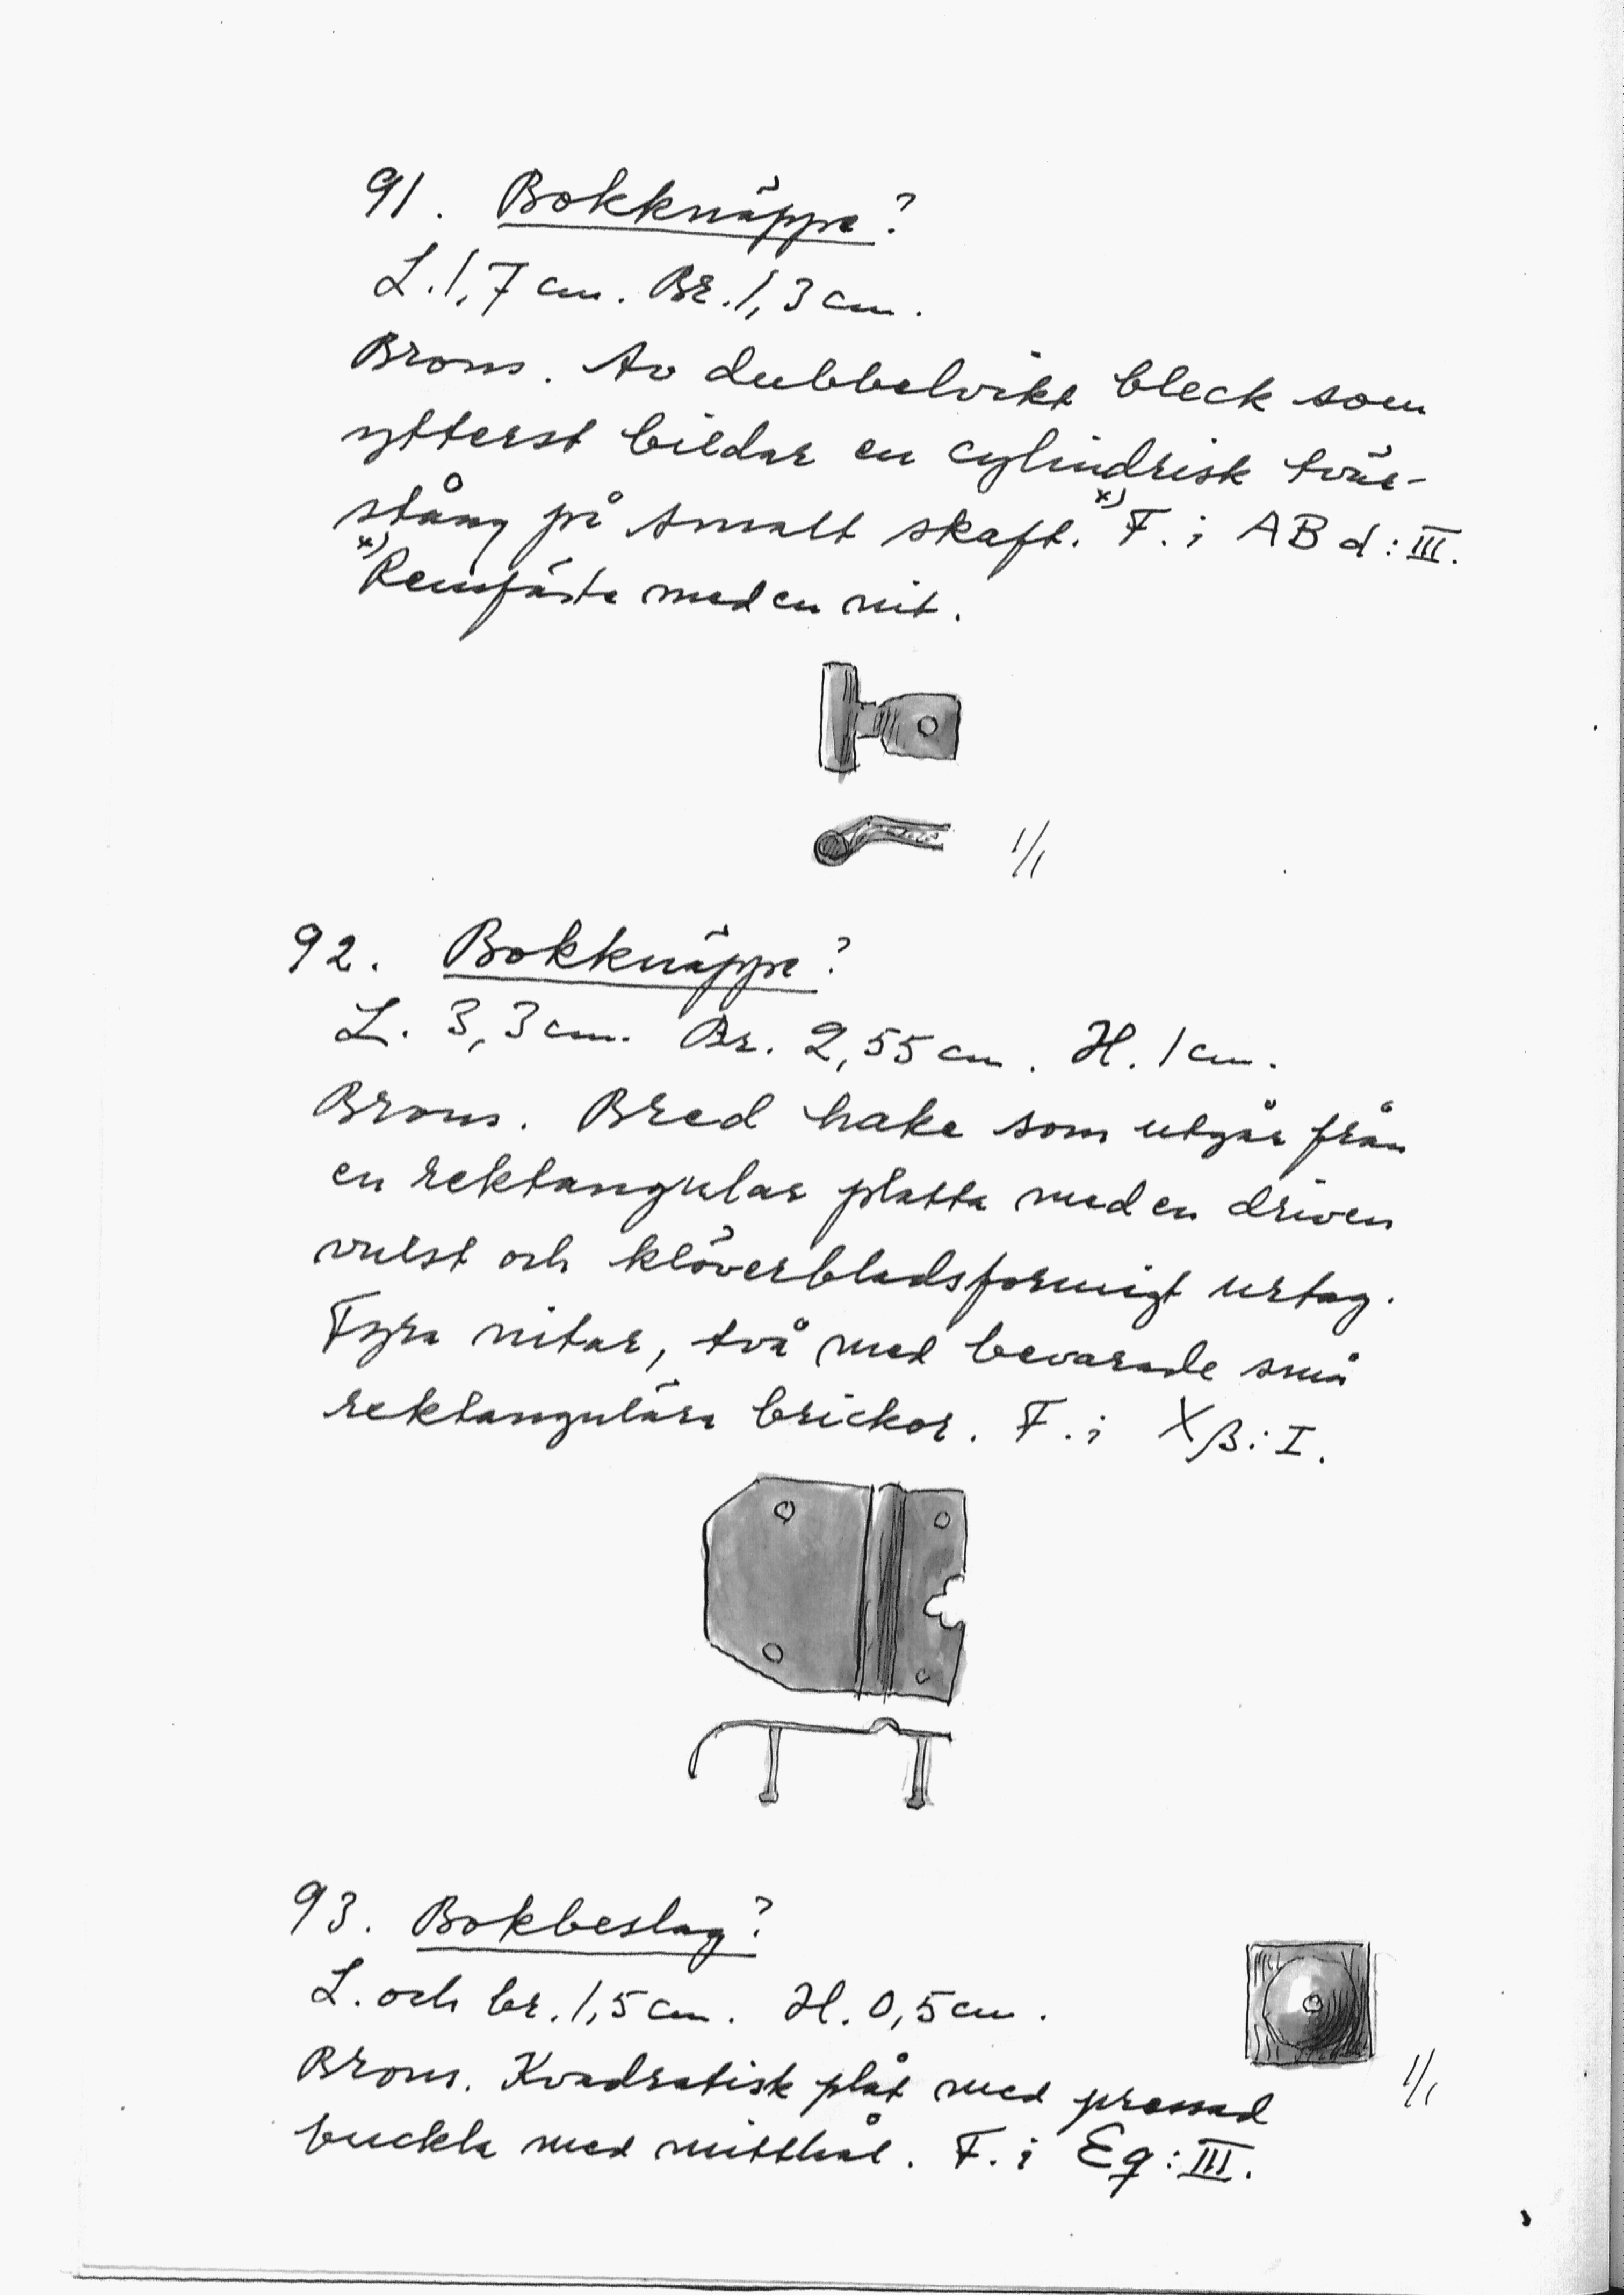 91. Bokknäppe?
L. 1,7 cm. Br. 1,3 cm.
Brons. Av dubbelvikt bleck som
ytterst bildar en cylindrisk tvär-
stång på smalt skaft. x) F. i ABd:III.
x) Remfäste med en nit.
1/1
92. Bokknäppe?
L. 3,3 cm. Br. 2,55 cm. H. 1 cm.
Brons. Bred hake som utgår från
en rektangular platta med en driven
vulst och klöverbladsformigt urtag.
Fyra nitar, två med bevarade små
rektangulära brickor. F. i Xβ:I.
93. Bokbeslag?
L. och br. 1,5 cm. H. 0,5 cm.
Brons. Kvadratisk plåt med pressad
buckla med mitthål. F. i Eq:III.
1/1